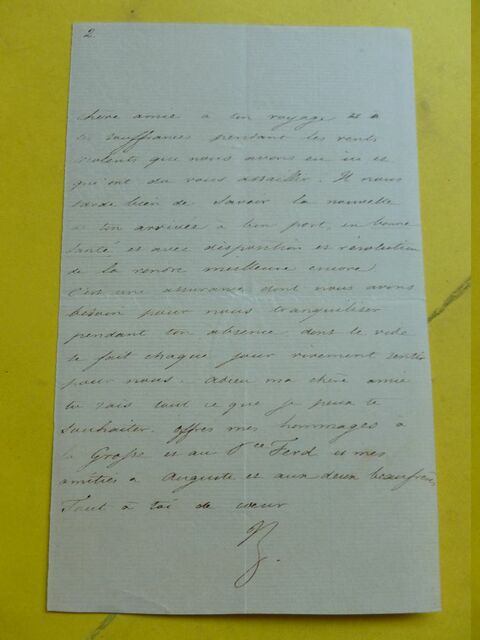 2
chère amie à ton voyage et à
tes souffrances pendant les vents
violents que nous avons eu ici et
qui ont du vous assaillir. Il nous
tarde bien de savoir la nouvelle
de ton arrivée à bon port, en bonne
santé et avec disposition et résolution
de la rendre meilleure encore
c'est une assurance dont nous avons
besoin pour nous tranquiliser
pendant ton absence dont le vide
se fait chaque jour vivement sentir
pour nous. Adieu ma chère amie
tu sais tout ce que je peux te
souhaiter. offres mes hommages à
la et au Pce Ferd et mes
amitiés a Auguste et aux deux beaufrères
Tout à toi de coeur